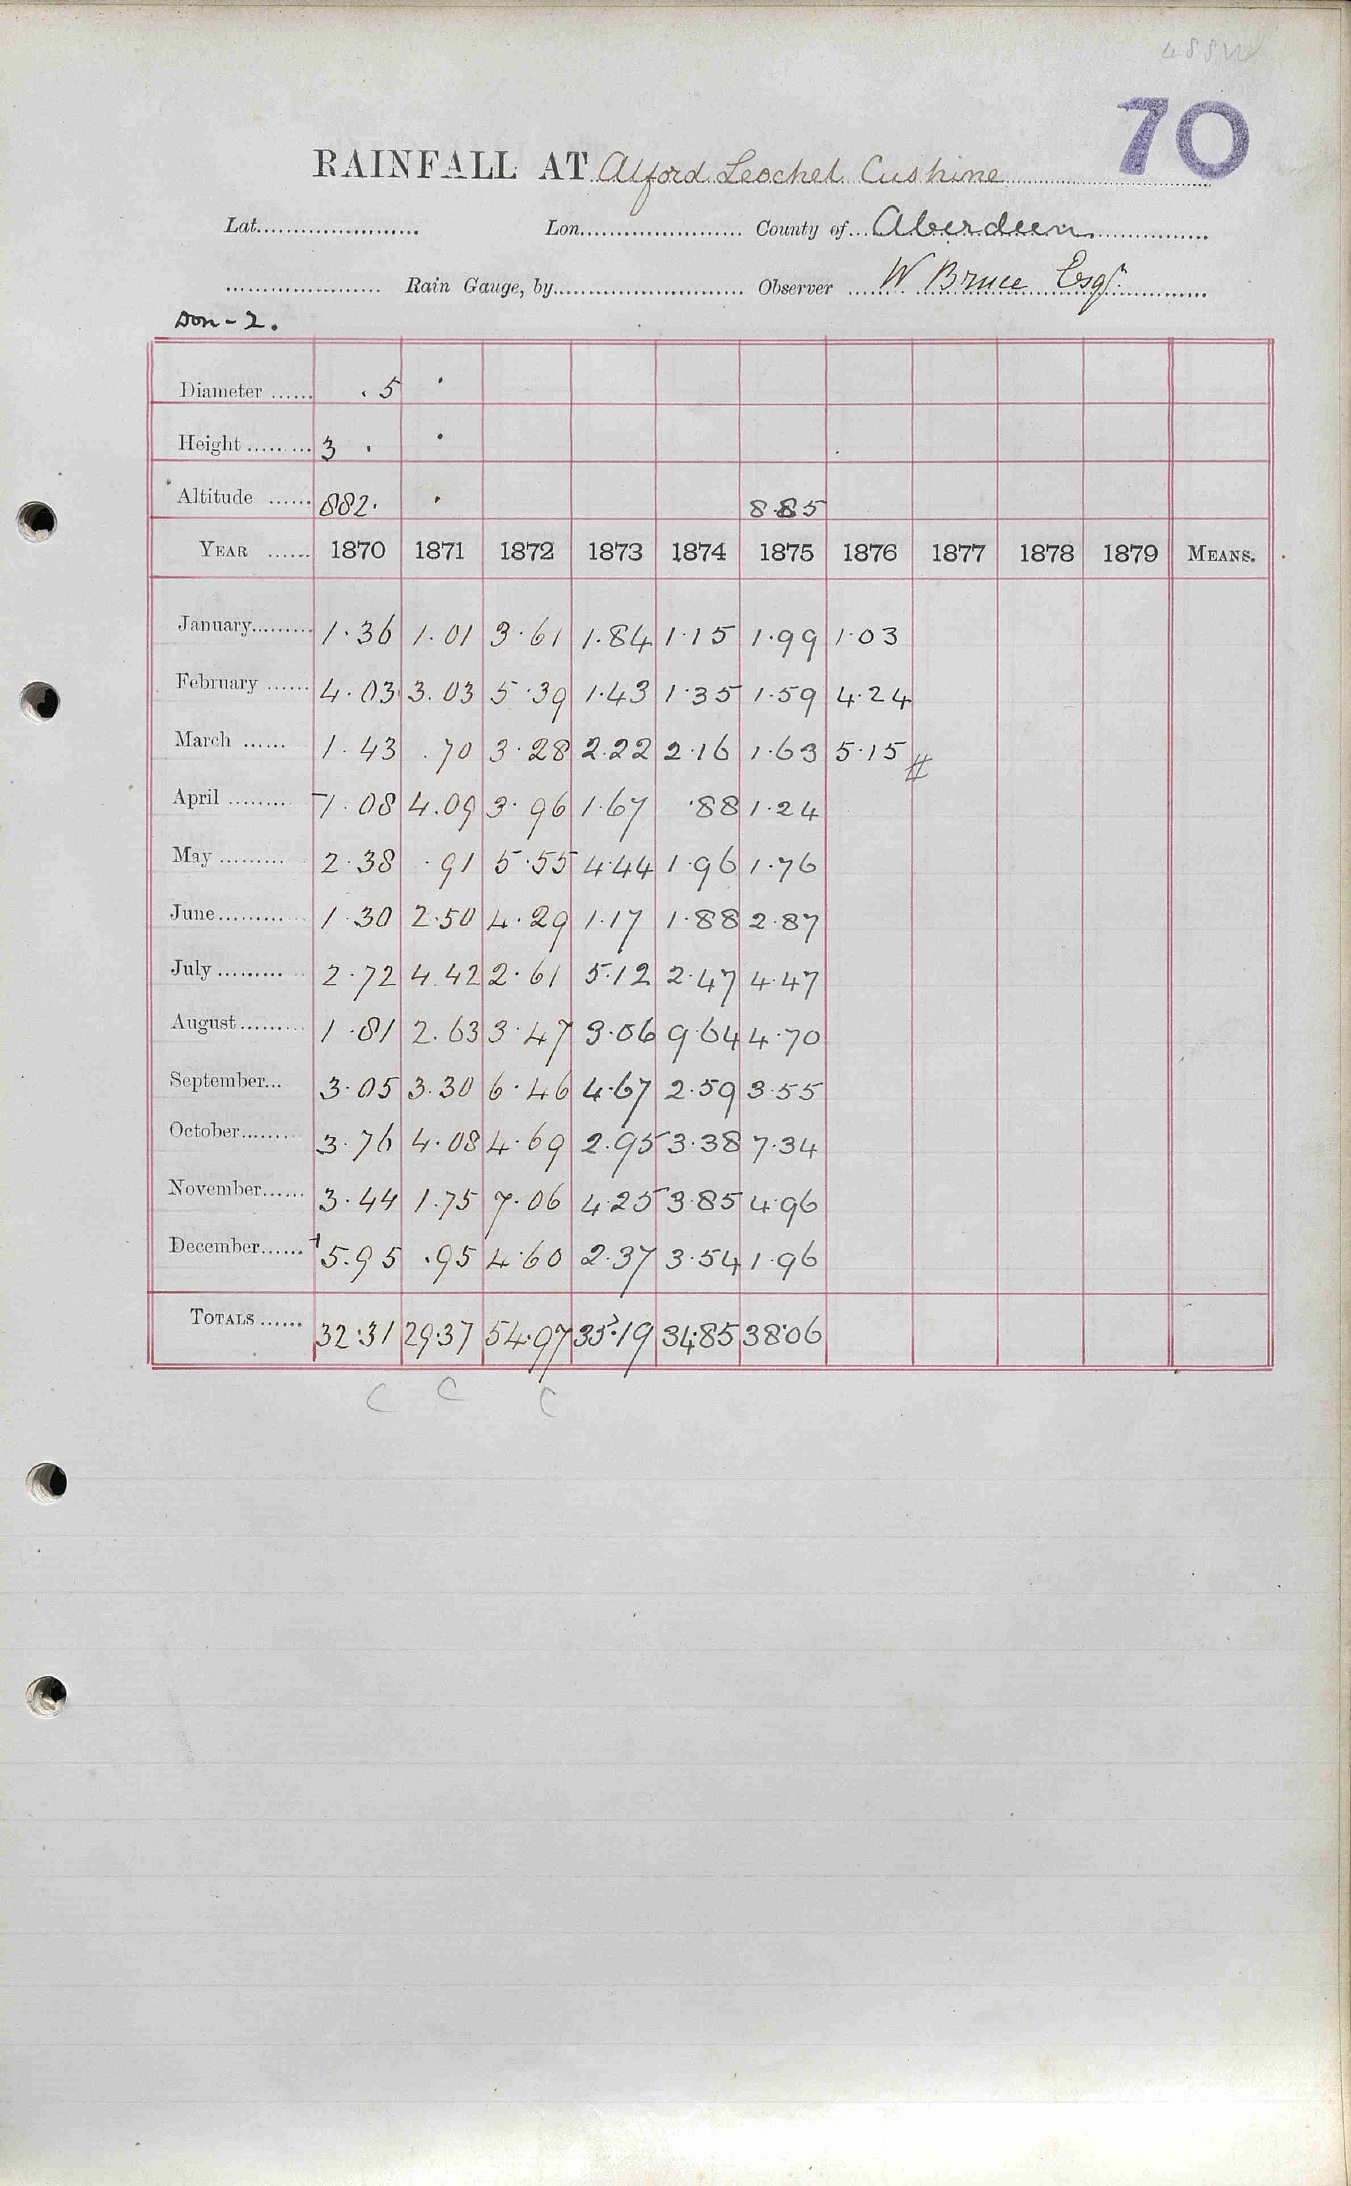 488W
70
RAINFALL AT Alford Leochel Cushine
Lat. Lon. County of Aberdeen
Rain Gauge, by Observer W Bruce Esqr
Don - 2.
Diameter .5 .
Height 3 . .
Altitude 882. . 885
YEAR 1870 1871 1872 1873 1874 1875 1876 1877 1878 1879 MEANS.
January 1.36 1.01 3.61 1.84 1.15 1.99 1.03
February 4.03 3.03 5.39 1.43 1.35 1.59 4.24
March 1.43 .70 3.28 2.22 2.16 1.63 5.15 #
April 1.08 4.09 3.96 1.67 .88 1.24
May 2.38 .91 5.55 4.44 1.96 1.76
June 1.30 2.50 4.29 1.17 1.88 2.87
July 2.72 4.42 2.61 5.12 2.47 4.47
August 1.81 2.63 3.47 3.06 9.64 4.70
September 3.05 3.30 6.46 4.67 2.59 3.55
October 3.76 4.08 4.69 2.95 3.38 7.34
November 3.44 1.75 7.06 4.25 3.85 4.96
December 5.95 .95 4.60 2.37 3.54 1.96
TOTALS 32.31 29.37 54.97 35.19 34.85 38.06
C C C